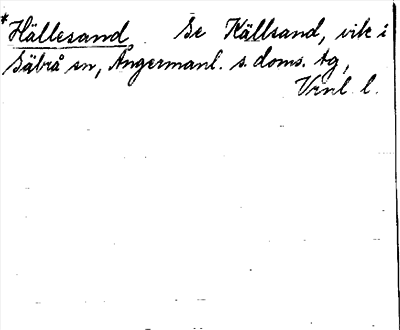 *Hällesand. Se Källsand, vik i
Säbrå sn, Ångermanl. s. doms. tg,
Vrnl. l.